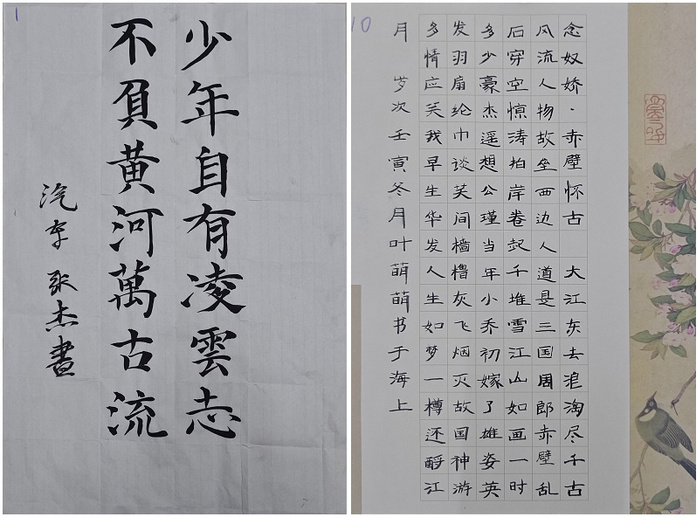 1
少年自有凌雲志
不負黄河萬古流
汽车 张杰書
10
念奴娇·赤壁怀古 大江东去浪淘尽千古
风流人物故垒西边人道是三国周郎赤壁乱
石穿空惊涛拍岸卷起千堆雪江山如画一时
多少豪杰遥想公瑾当年小乔初嫁了雄姿英
发羽扇纶巾谈笑间樯橹灰飞烟灭故国神游
多情应笑我早生华发人生如梦一樽还酹江
月 岁次壬寅冬月叶萌萌书于海上